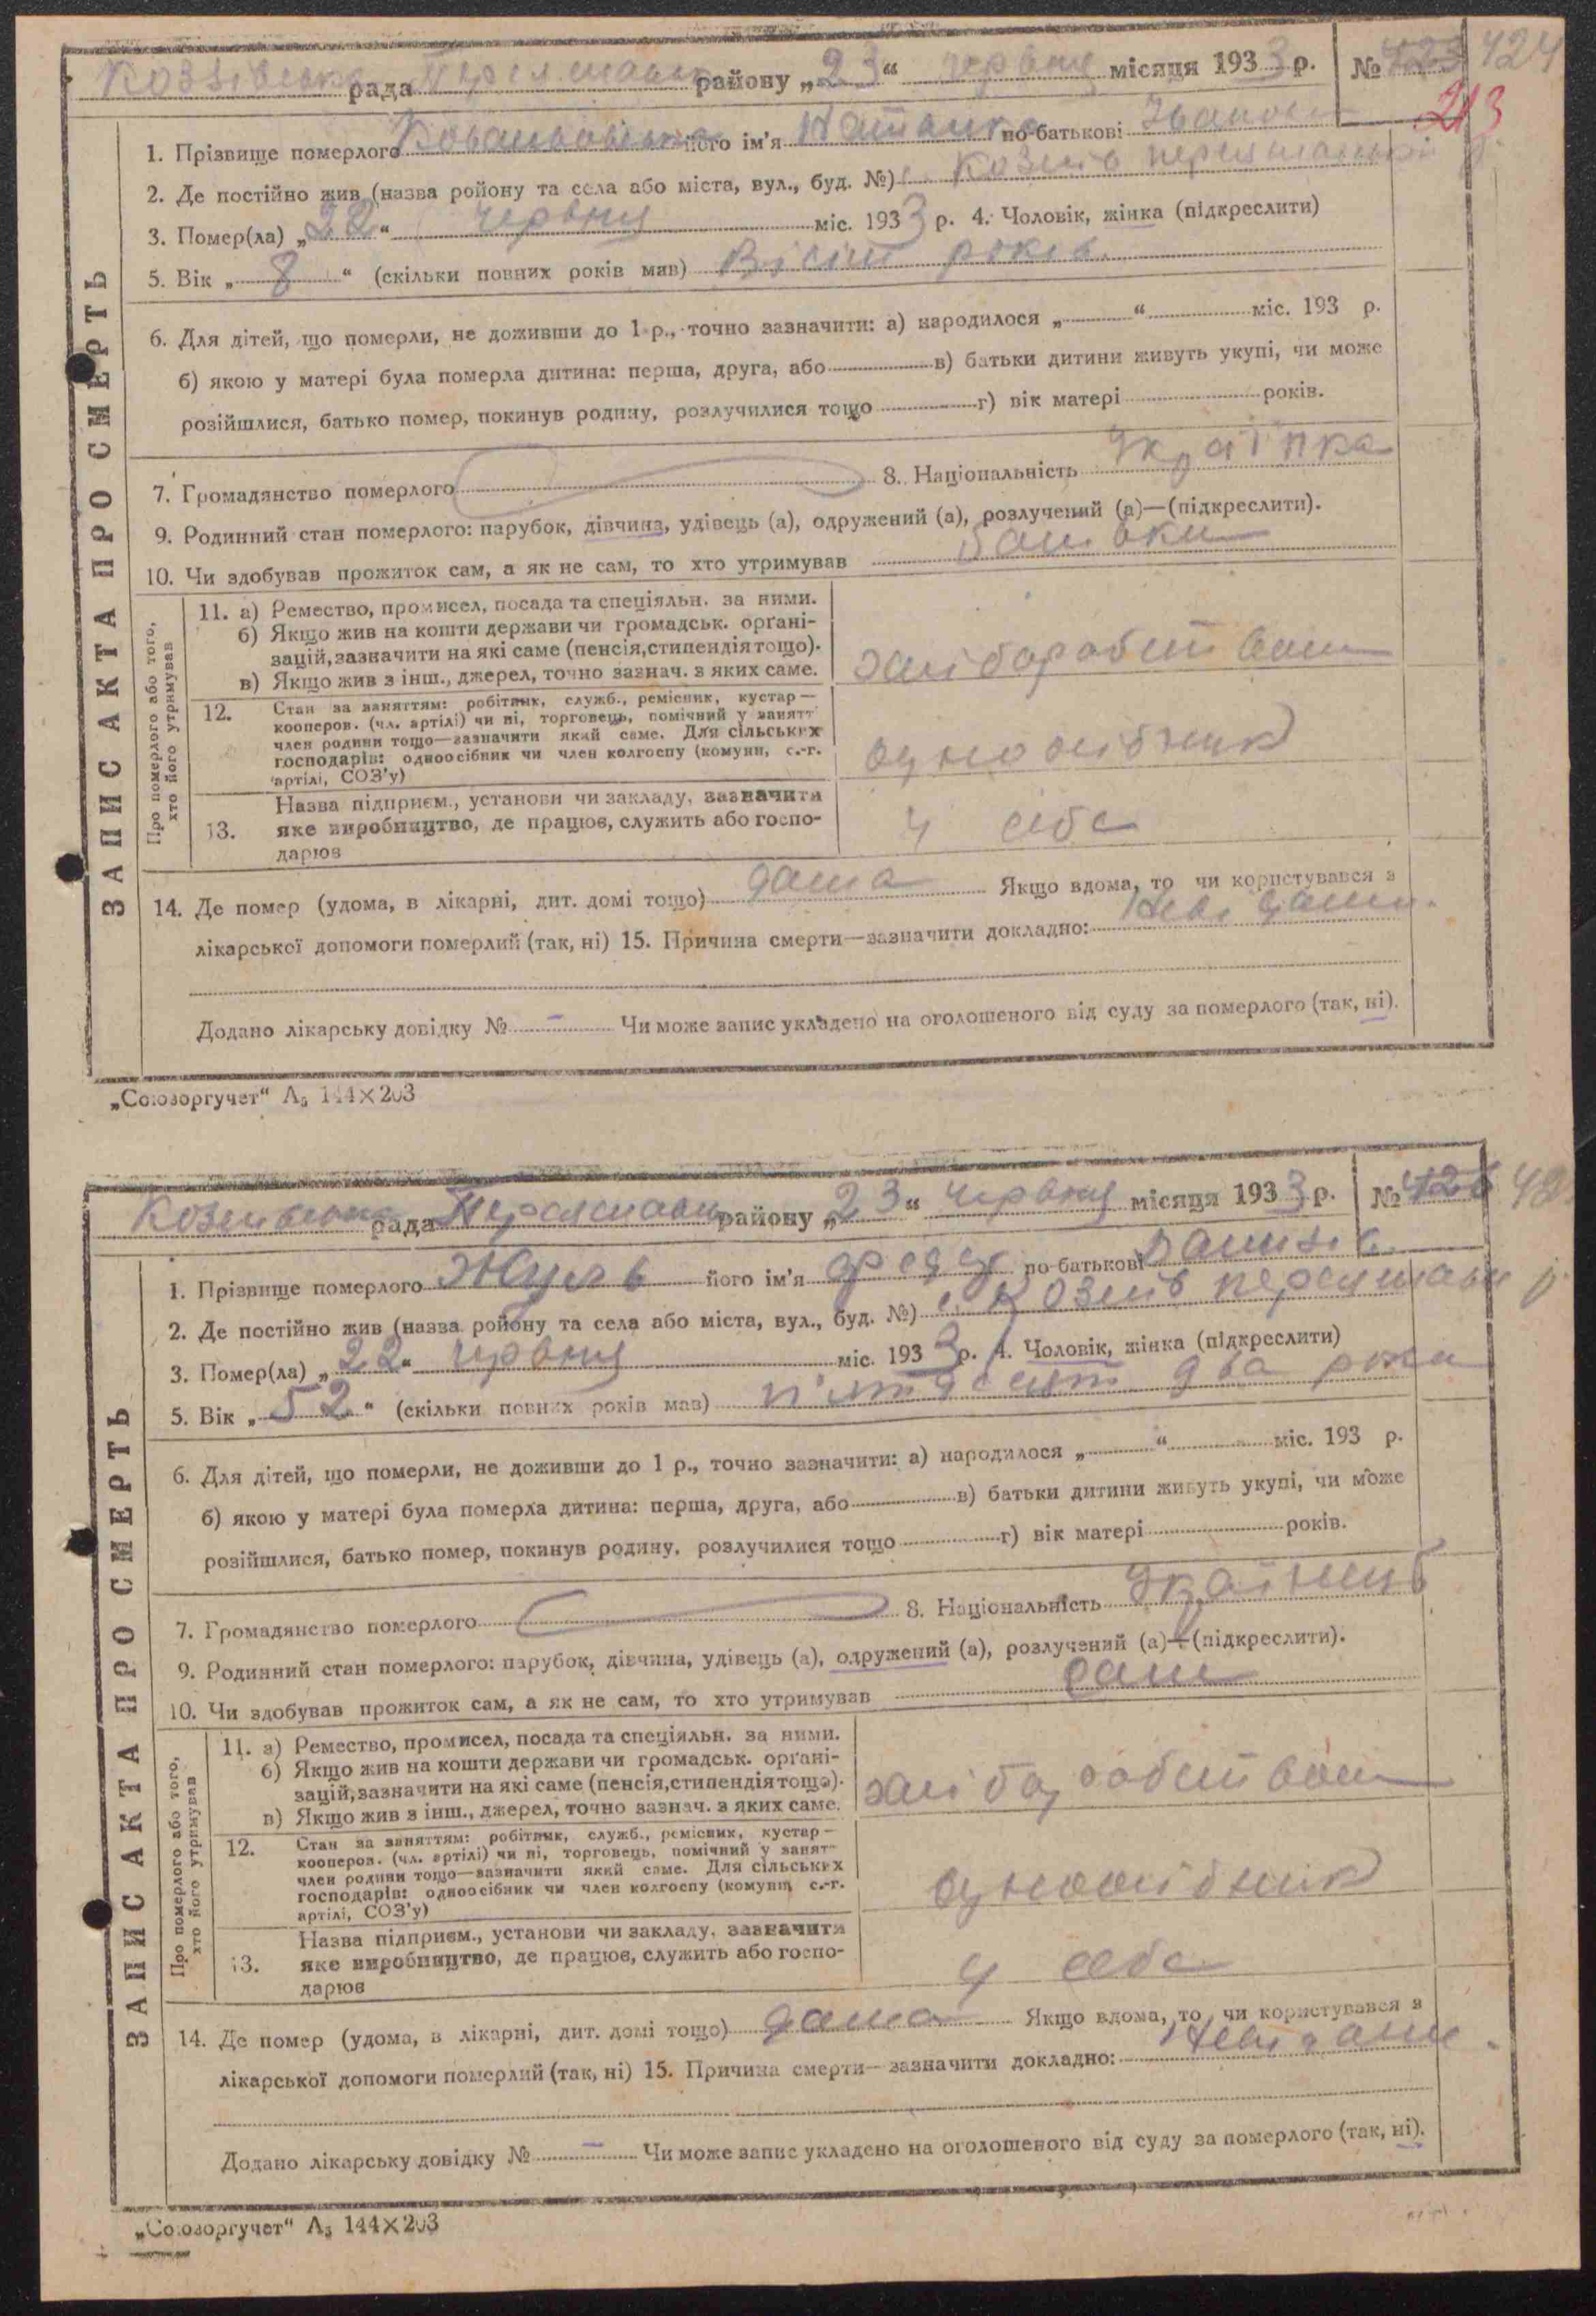 рада Переяславськ району „23“ червня місяця 1933 р. № 424
213
1. Прізвище померлого його ім'я Наталка по-батькові Іванов
2. Де постійно жив (назва ройону та села або міста, вул., буд. №) с. Козлів переяславськ р.
3. Помер(ла) „22“ червня міс. 1933 р. 4. Чоловік, жінка (підкреслити)
5. Вік „8“ (скільки повних років мав) Вісім років.
6. Для дітей, що померли, не доживши до 1 р., точно зазначити: а) народилося „ “ міс. 193 р.
б) якою у матері була померла дитина: перша, друга, або в) батьки дитини живуть укупі, чи може
розійшлися, батько помер, покинув родину, розлучилися тощо г) вік матері років.
7. Громадянство померлого 8. Національність Українка
9. Родинний стан померлого: парубок, дівчина, удівець (а), одружений (а), розлучений (а)—(підкреслити).
10. Чи здобував прожиток сам, а як не сам, то хто утримував батьки
ЗАПИС АКТА ПРО СМЕРТЬ
Про померлого або того, хто його утримував
11. а) Ремество, промисел, посада та спеціяльн. за ними.
б) Якщо жив на кошти держави чи громадськ. органі-
зацій, зазначити на які саме (пенсія, стипендія тощо).
в) Якщо жив з інш., джерел, точно зазнач. з яких саме.
хліборобством
12. Стан за заняттям: робітник, служб., ремісник, кустар—
кооперов. (чл. артілі) чи ні, торговець, помічний у занятт
член родини тощо—зазначити який саме. Для сільських
господарів: одноосібник чи член колгоспу (комуни, с.-г.
артілі, СОЗ'у)
одноосібник
13. Назва підприєм., установи чи закладу, зазначити
яке виробництво, де працює, служить або госпо-
дарює
у себе
14. Де помер (удома, в лікарні, дит. домі тощо) дома Якщо вдома, то чи користувався з
лікарської допомоги померлий (так, ні) 15. Причина смерти—зазначити докладно: Невідомо.
Додано лікарську довідку № – Чи може запис укладено на оголошеного від суду за померлого (так, ні).
„Союзоргучет“ А₅ 144×203
рада Переяславськ району „23“ червня місяця 1933 р. №
1. Прізвище померлого його ім'я Федір по-батькові
2. Де постійно жив (назва ройону та села або міста, вул., буд. №) с. Козлів переяславськ р.
3. Помер(ла) „22“ червня міс. 1933 р. 4. Чоловік, жінка (підкреслити)
5. Вік „52“ (скільки повних років мав) п'ятдесят два роки
6. Для дітей, що померли, не доживши до 1 р., точно зазначити: а) народилося „ “ міс. 193 р.
б) якою у матері була померла дитина: перша, друга, або в) батьки дитини живуть укупі, чи може
розійшлися, батько помер, покинув родину, розлучилися тощо г) вік матері років.
7. Громадянство померлого 8. Національність Українець
9. Родинний стан померлого: парубок, дівчина, удівець (а), одружений (а), розлучений (а)—(підкреслити).
10. Чи здобував прожиток сам, а як не сам, то хто утримував сам
ЗАПИС АКТА ПРО СМЕРТЬ
Про померлого або того, хто його утримував
11. а) Ремество, промисел, посада та спеціяльн. за ними.
б) Якщо жив на кошти держави чи громадськ. органі-
зацій, зазначити на які саме (пенсія, стипендія тощо).
в) Якщо жив з інш., джерел, точно зазнач. з яких саме.
хліборобством
12. Стан за заняттям: робітник, служб., ремісник, кустар—
кооперов. (чл. артілі) чи ні, торговець, помічний у занят-
член родини тощо—зазначити який саме. Для сільських
господарів: одноосібник чи член колгоспу (комуни, с.-г.
артілі, СОЗ'у)
одноосібник
13. Назва підприєм., установи чи закладу, зазначити
яке виробництво, де працює, служить або госпо-
дарює
у себе
14. Де помер (удома, в лікарні, дит. домі тощо) дома Якщо вдома, то чи користувався з
лікарської допомоги померлий (так, ні) 15. Причина смерти—зазначити докладно: Невідомо.
Додано лікарську довідку № – Чи може запис укладено на оголошеного від суду за померлого (так, ні).
„Союзоргучет“ А₅ 144×203